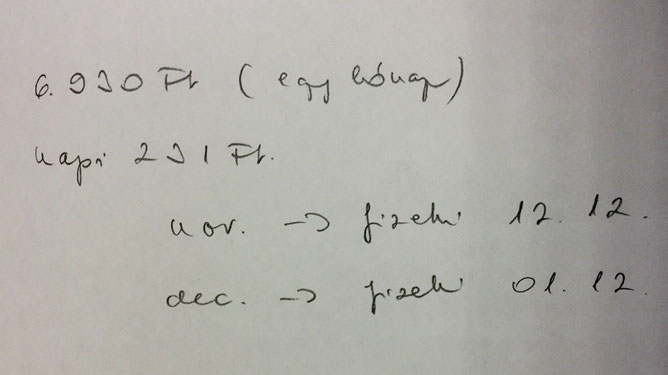 6.930 Ft (egy hónap)
napi 231 Ft.
nov. → fizetni 12. 12.
dec. → fizetni 01. 12.